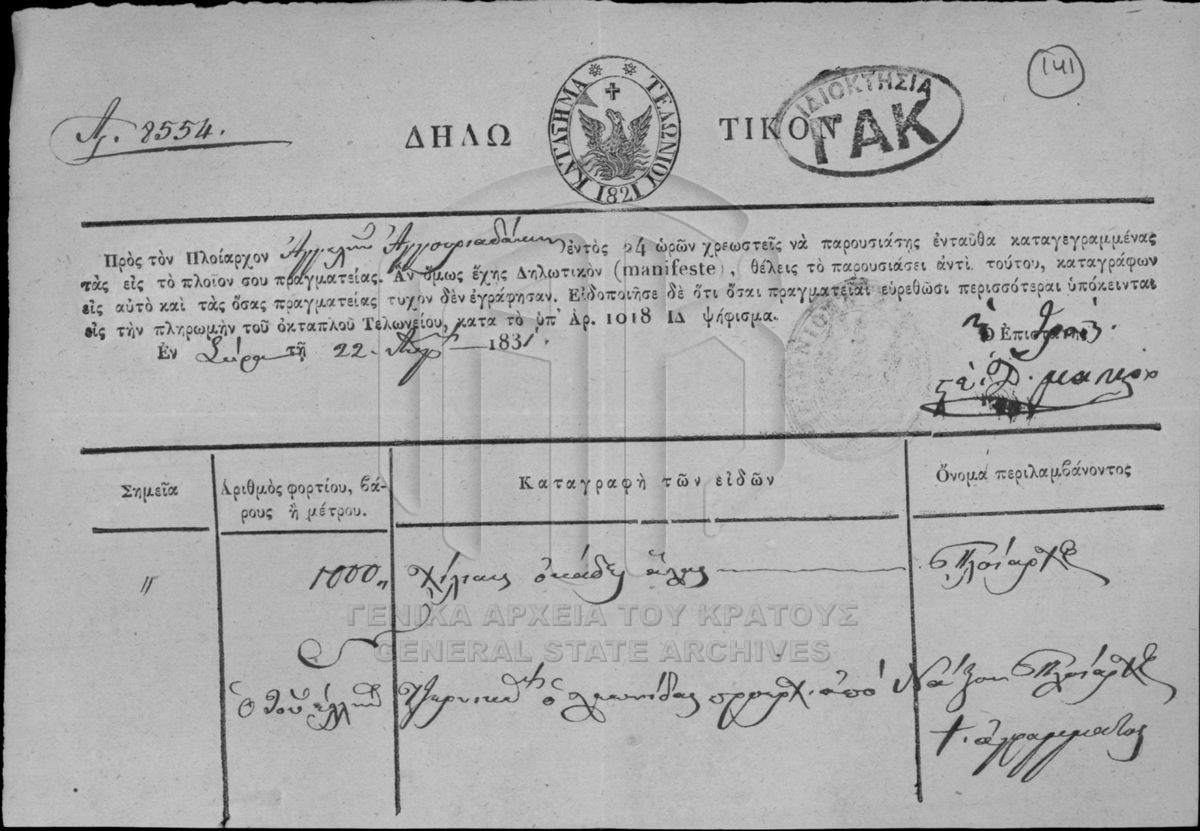 141
Ἀρ. 8554.
ΔΗΛΩ ΤΙΚΟΝ
ΚΑΤΑΣΤΗΜΑ ΤΕΛΩΝΙΟΥ 1821
ΙΔΙΟΚΤΗΣΙΑ
ΓΑΚ
Πρὸς τὸν Πλοίαρχον ἐντὸς 24 ὡρῶν χρεωστεῖς νὰ παρουσιάσης ἐνταῦθα καταγεγραμμένας
τὰς εἰς τὸ πλοῖόν σου πραγματείας. Ἂν ὅμως ἔχης Δηλωτικὸν (manifeste), θέλεις τὸ παρουσιάσει ἀντὶ τούτου, καταγράφων
εἰς αὐτὸ καὶ τὰς ὅσας πραγματείας τυχὸν δὲν ἐγράφησαν. Εἰδοποιῆσε δὲ ὅτι ὅσαι πραγματεῖαι εὑρεθῶσι περισσότεραι ὑπόκεινται
εἰς τὴν πληρωμὴν τοῦ ὀκταπλοῦ Τελωνείου, κατὰ τὸ ὑπ' Ἀρ. 1018 ΙΔ ψήφισμα.
Ἐν Σύρᾳ τῇ 22 1831
Ὁ Ἐπιστάτης
Σημεῖα
Ἀριθμὸς φορτίου, βά-
ρους ἢ μέτρου.
Καταγραφὴ τῶν εἰδῶν
Ὄνομα περιλαμβάνοντος
"
1000 „ χίλιαις ὀκάδες ἅλας ὁ Πλοίαρχος
ΓΕΝΙΚΑ ΑΡΧΕΙΑ ΤΟΥ ΚΡΑΤΟΥΣ
GENERAL STATE ARCHIVES
ὁ Λεωνίδας ἀπό Νάξον ὁ Πλοίαρχος
+ ἀγράμματος